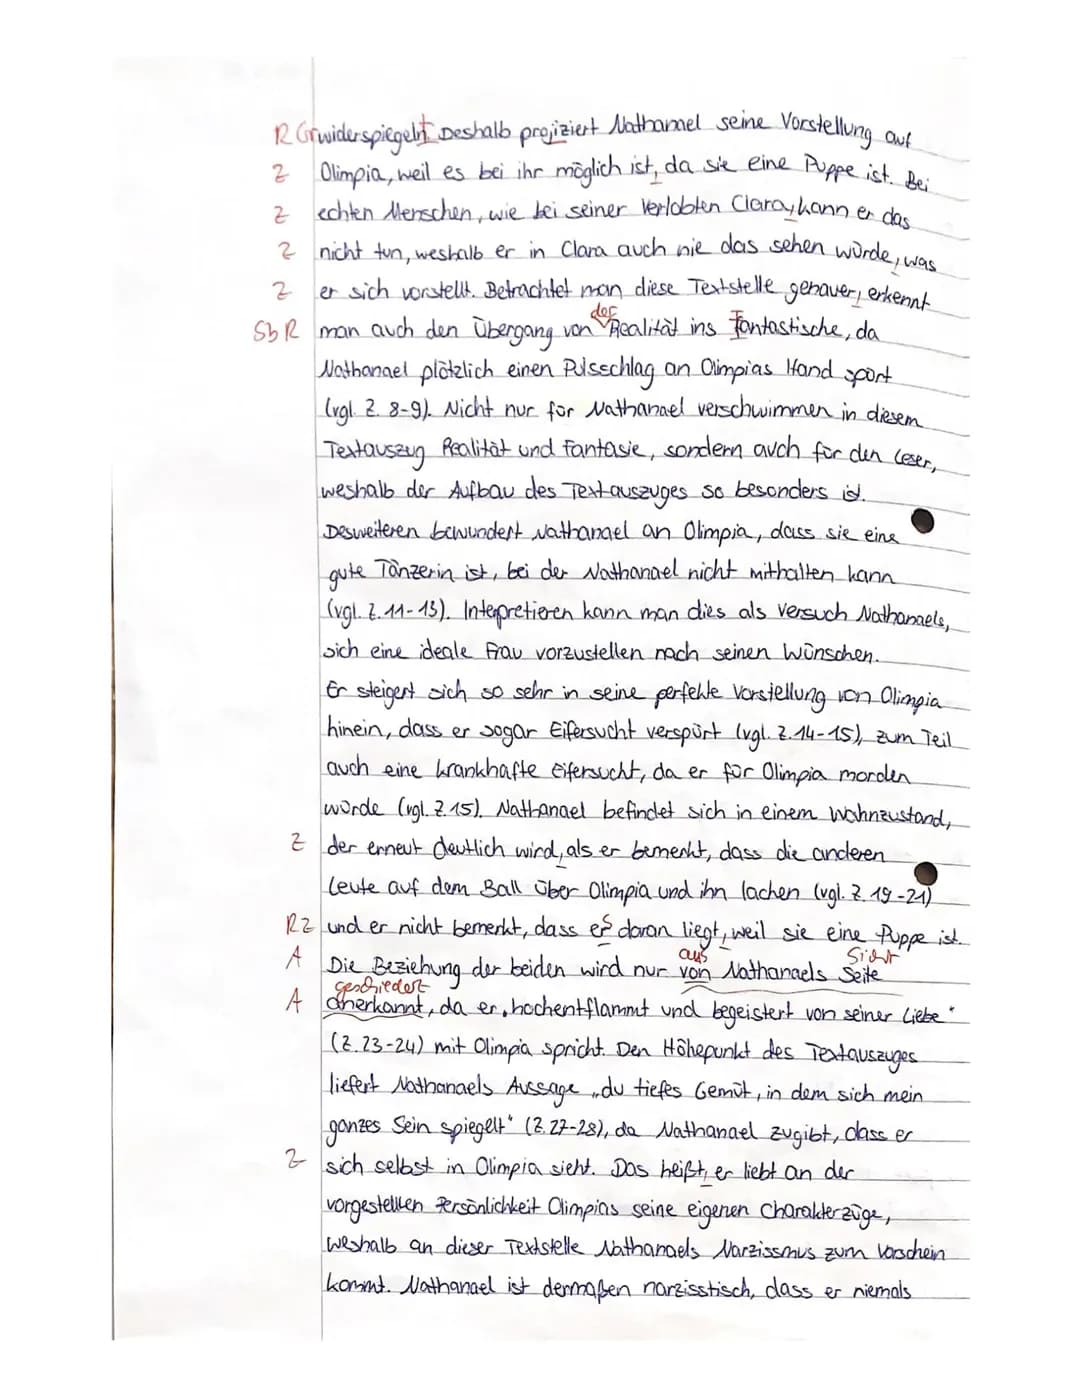 R Gr widerspiegelt. Deshalb projiziert Nathanael seine Vorstellung auf
Z Olimpia, weil es bei ihr möglich ist, da sie eine Puppe ist. Bei
Z echten Menschen, wie bei seiner Verlobten Clara, kann er das
Z nicht tun, weshalb er in Clara auch nie das sehen würde, was
Z er sich vorstellt. Betrachtet man diese Textstelle genauer, erkennt
der
Sb R man auch den Übergang von Realität ins Fantastische, da
Nathanael plötzlich einen Pulsschlag an Olimpias Hand spürt
(vgl. Z. 8-9). Nicht nur für Nathanael verschwimmen in diesem
Textauszug Realität und Fantasie, sondern auch für den Leser,
weshalb der Aufbau des Textauszuges so besonders ist.
Desweiteren bewundert Nathanael an Olimpia, dass sie eine
gute Tänzerin ist, bei der Nathanael nicht mithalten kann
(vgl. Z. 11-13). Interpretieren kann man dies als Versuch Nathanaels,
sich eine ideale Frau vorzustellen nach seinen Wünschen.
Er steigert sich so sehr in seine perfekte Vorstellung von Olimpia
hinein, dass er sogar Eifersucht verspürt (vgl. Z. 14-15), zum Teil
auch eine krankhafte Eifersucht, da er für Olimpia morden
würde (vgl. Z. 15). Nathanael befindet sich in einem Wahnzustand,
Z der erneut deutlich wird, als er bemerkt, dass die anderen
Leute auf dem Ball über Olimpia und ihn lachen (vgl. Z. 19-21)
R Z und er nicht bemerkt, dass es daran liegt, weil sie eine Puppe ist.
aus Sicht
A Die Beziehung der beiden wird nur von Nathanaels Seite
geschiedert
A anerkannt, da er „hochentflammt und begeistert von seiner Liebe"
(Z. 23-24) mit Olimpia spricht. Den Höhepunkt des Textauszuges
liefert Nathanaels Aussage „du tiefes Gemüt, in dem sich mein
ganzes Sein spiegelt" (Z. 27-28), da Nathanael zugibt, dass er
Z sich selbst in Olimpia sieht. Das heißt, er liebt an der
vorgestellten Persönlichkeit Olimpias seine eigenen Charakterzüge,
weshalb an dieser Textstelle Nathanaels Narzissmus zum Vorschein
kommt. Nathanael ist dermaßen narzisstisch, dass er niemals